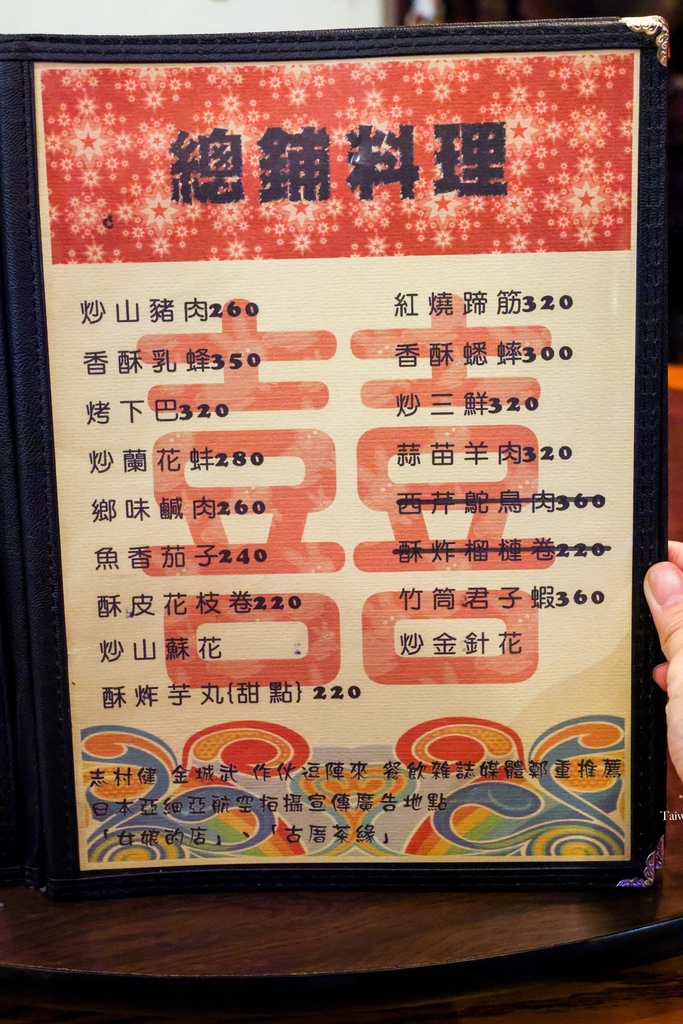 總鋪料理
炒山豬肉260
香酥乳蜂350
烤下巴320
炒蘭花蚌280
鄉味鹹肉260
魚香茄子240
酥皮花枝卷220
炒山蘇花
酥炸芋丸{甜點} 220
紅燒蹄筋320
香酥蟋蟀300
炒三鮮320
蒜苗羊肉320
西芹鴕鳥肉360
酥炸榴槤卷220
竹筒君子蝦360
炒金針花
志村健 金城武 作伙逗陣來 餐飲雜誌媒體鄭重推薦
日本亞細亞航空拍攝宣傳廣告地點
「女娘的店」、「古厝茶緣」
Taiw